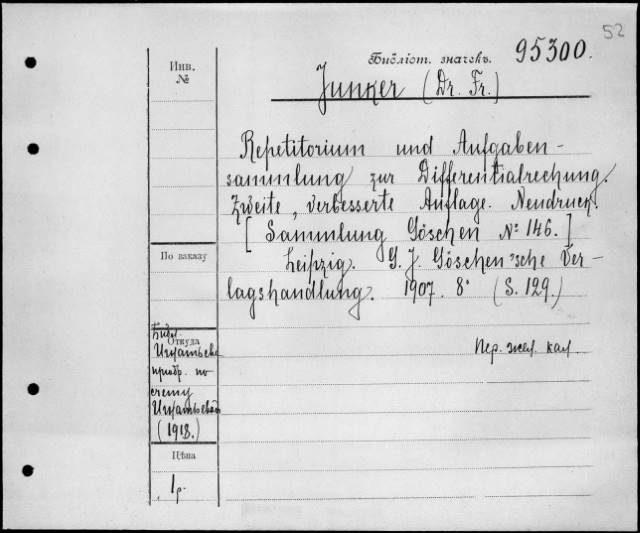 52
Библіот. значекъ. 95300.
Инв.
№
Junker (Dr. Fr.)
Repetitorium und Aufgaben-
sammlung zur Differentialrechung.
Zweite, verbesserte Auflage. Neudruck.
[Sammlung Göschen № 146.]
Leipzig. G. J. Göschen'sche Ver-
lagshandlung. 1907. 8° (S. 129.)
По заказу
Откуда
Библ.
Игнатьева
приобр. по
счету
Игнатьевой
(1918.)
Пер. жел. кал.
Цѣна
1 р.